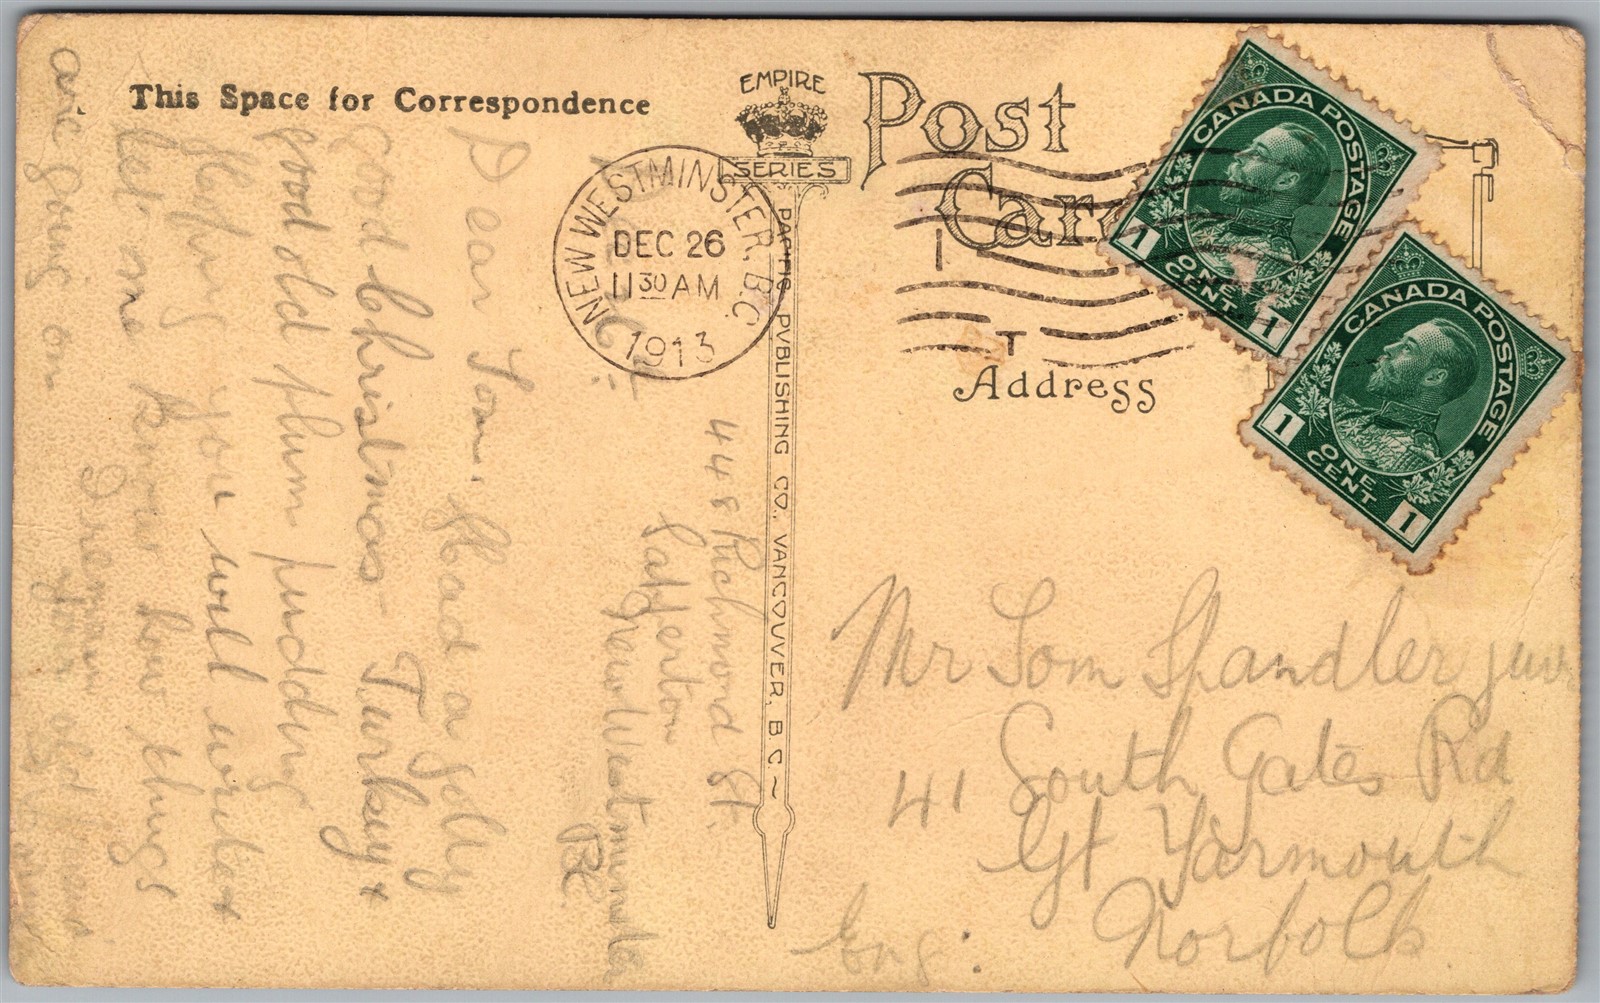 This Space for Correspondence
EMPIRE
SERIES
Post
Card
PACIFIC PVBLISHING CO., VANCOUVER, B.C.
NEW WESTMINSTER. B.C
DEC 26
11 30 AM
1913
CANADA POSTAGE
1 ONE CENT 1
CANADA POSTAGE
1 ONE CENT 1
Address
448 Richmond St.
Sapperton
New Westminster
BC
Dear Tom. Had a Jolly
Good Christmas Turkey &
good old plum pudding
Hoping you will write &
let me know how things
are going on
your old friend
Mr Tom Spandler
41 South Gates Rd
Gt Yarmouth
Norfolk
Eng.